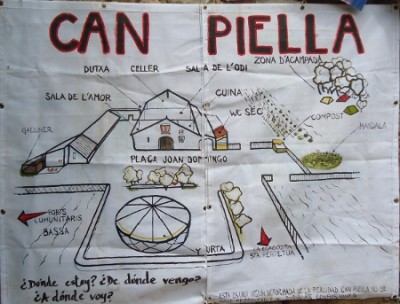 CAN PIELLA
ZONA D'ACAMPADA
DUTXA CELLER SALA DE L'ODI
SALA DE L'AMOR
CUINA
WC SEC
COMPOST
MANDALA
GALLINER
PLAÇA JOAN DOMINGO
HORTS
COMUNITARIS
BASSA
IURTA
A LLAGOSTA
STA PERPETUA
¿Dónde estoy? ¿De dónde vengo?
¿A dónde voy?